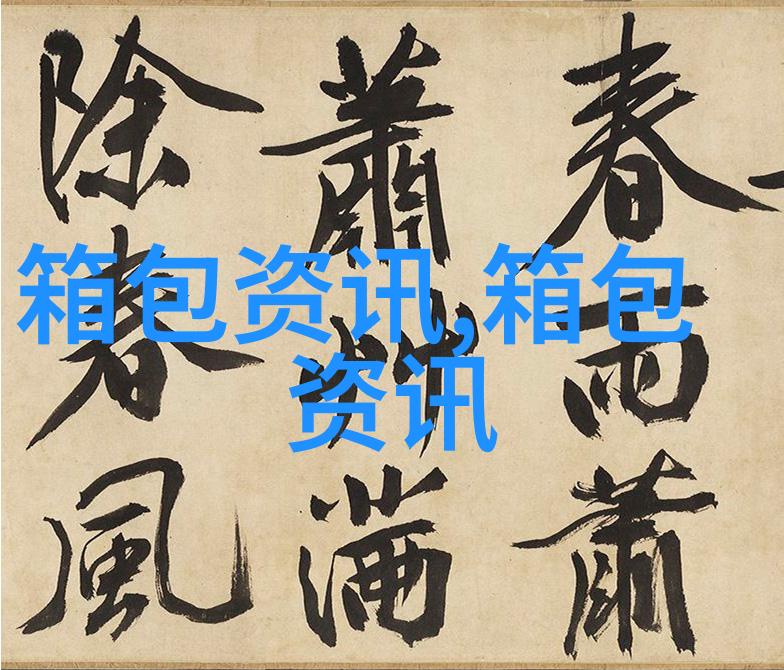 箱包资讯,箱包
资讯
春雨蕭
蕭艸滿
除春風